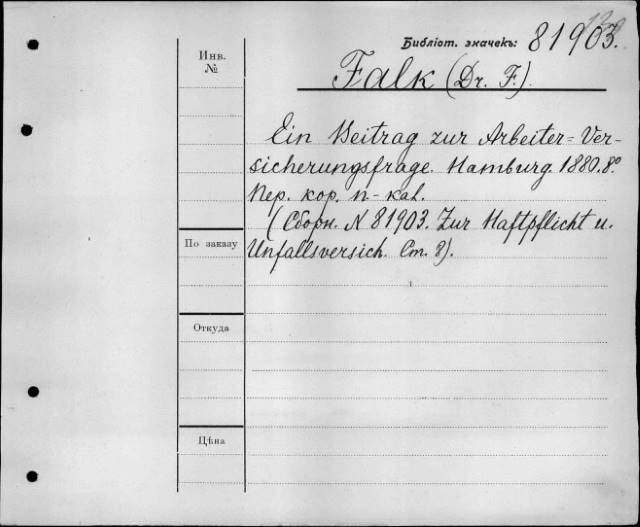 Библіот. значекъ: 81903.
Инв. №
Falk (Dr. F.)
Ein Beitrag zur Arbeiter=Ver-
sicherungsfrage. Hamburg. 1880. 8º
Пер. кор. п-кал.
(Сборн. N 81903. Zur Haftpflicht u.
По заказу
Unfallsversich. Ст. 8).
Откуда
Цѣна